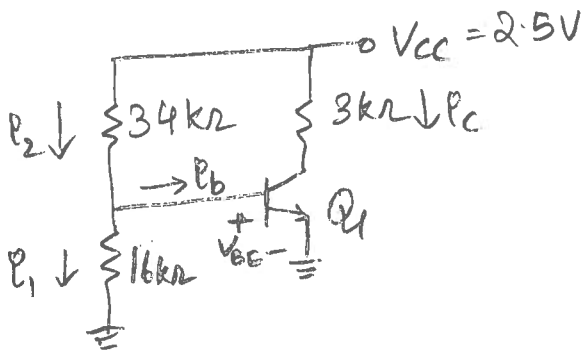 Vcc = 2.5V
i₂ ↓ 34kΩ
3kΩ ↓ ic
→ ib
+
VBE −
Q₁
i₁ ↓ 16kΩ